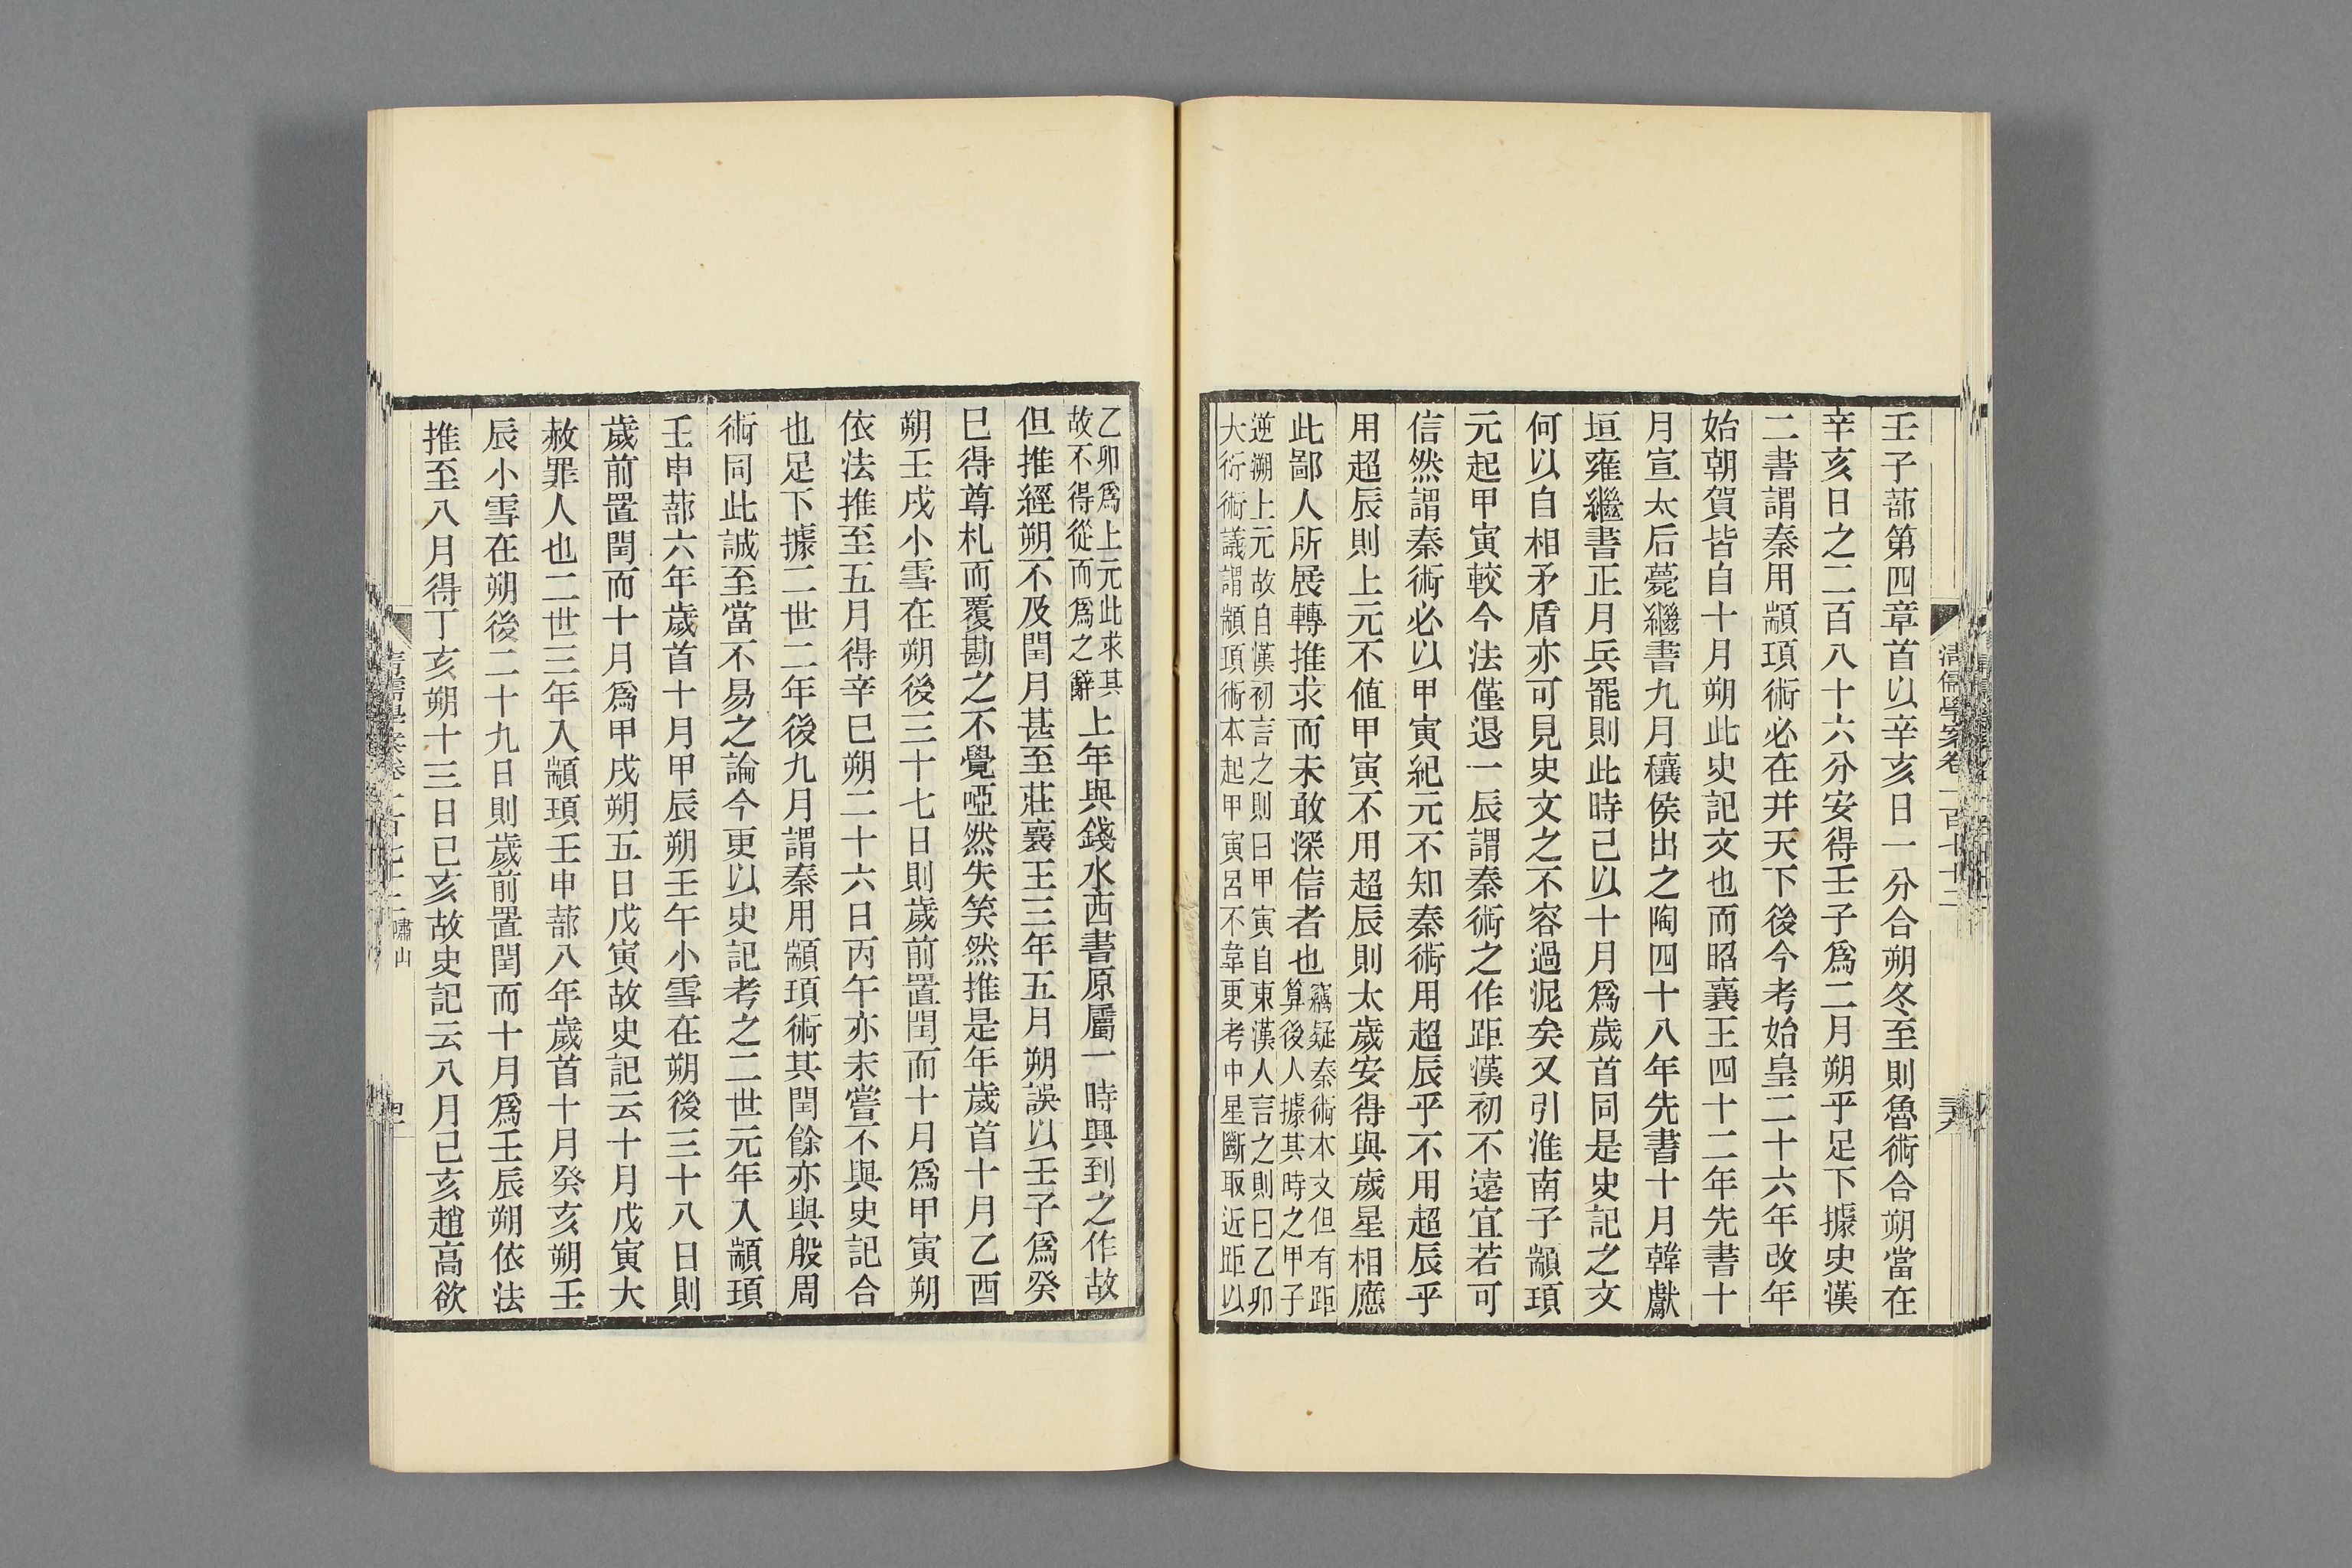 壬子蔀第四章首以辛亥日一分合朔冬至則魯術合朔當在
辛亥日之二百八十六分安得壬子爲二月朔乎足下據史漢
二書謂秦用顓頊術必在并天下後今考始皇二十六年改年
始朝賀皆自十月朔此史記文也而昭襄王四十二年先書十
月宣太后薨繼書九月穰侯出之陶四十八年先書十月韓獻
垣雍繼書正月兵罷則此時已以十月爲歲首同是史記之文
何以自相矛盾亦可見史文之不容過泥矣又引淮南子顓頊
元起甲寅較今法僅退一辰謂秦術之作距漢初不遠宜若可
信然謂秦術必以甲寅紀元不知秦術用超辰乎不用超辰乎
用超辰則上元不值甲寅不用超辰則太歲安得與歲星相應
此鄙人所展轉推求而未敢深信者也
竊疑秦術本文但有距
算後人據其時之甲子
逆溯上元故自漢初言之則曰甲寅自東漢人言之則曰乙卯
大衍術議謂顓頊術本起甲寅呂不韋更考中星斷取近距以
清儒學案卷一百七十二
乙卯爲上元此求其
故不得從而爲之辭
上年與錢水西書原屬一時興到之作故
但推經朔不及閏月甚至莊襄王三年五月朔誤以壬子爲癸
巳得尊札而覆勘之不覺啞然失笑然推是年歲首十月乙酉
朔壬戌小雪在朔後三十七日則歲前置閏而十月爲甲寅朔
依法推至五月得辛巳朔二十六日丙午亦未嘗不與史記合
也足下據二世二年後九月謂秦用顓頊術其閏餘亦與殷周
術同此誠至當不易之論今更以史記考之二世元年入顓頊
壬申蔀六年歲首十月甲辰朔壬午小雪在朔後三十八日則
歲前置閏而十月爲甲戌朔五日戊寅故史記云十月戊寅大
赦罪人也二世三年入顓頊壬申蔀八年歲首十月癸亥朔壬
辰小雪在朔後二十九日則歲前置閏而十月爲壬辰朔依法
推至八月得丁亥朔十三日己亥故史記云八月己亥趙高欲
嘯山